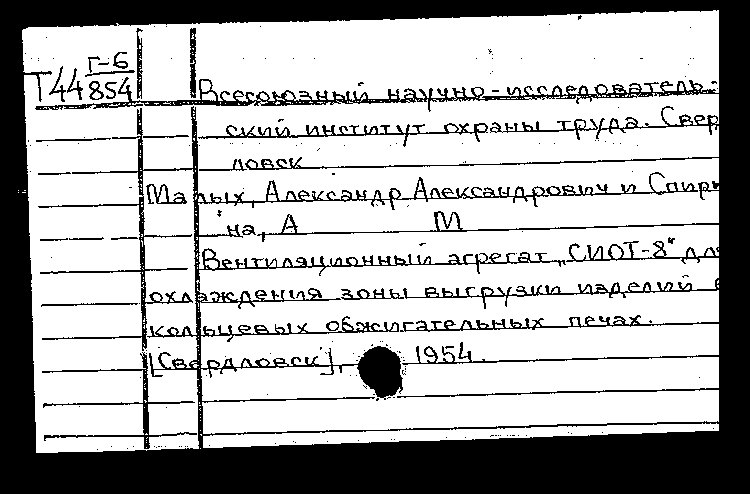 Г-6
Т44 854
Всесоюзный научно-исследователь-
ский институт охраны труда. Свер
ловск
Малых, Александр Александрович и Спири
на, А М
Вентиляционный агрегат „СИОТ-8" для
охлаждения зоны выгрузки изделий в
кольцевых обжигательных печах.
[Свердловск], 1954.